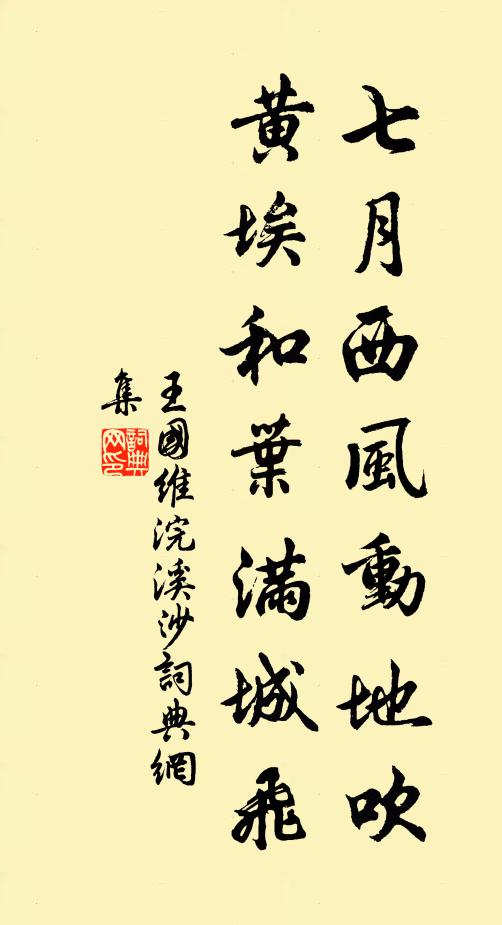 七月西風動地吹
黄埃和葉滿城飛
王國維浣溪沙詞典網
集
詞典網印